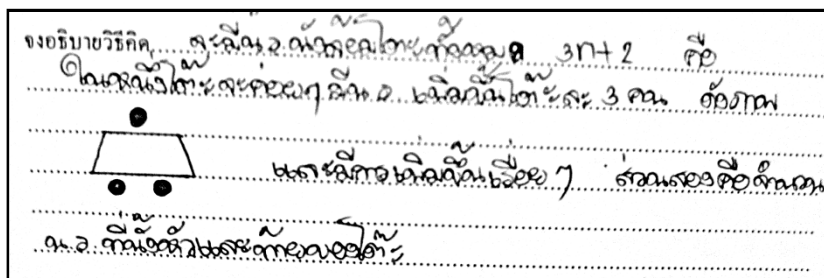 จงอธิบายวิธีคิด จะมีน.ร.นั่งล้อมโต๊ะทั้งหมด 3n+2 คือ
ในหนึ่งโต๊ะจะค่อยๆมีน.ร เพิ่มขึ้นโต๊ะละ 3 คน ดังภาพ
และมีการเพิ่มขึ้นเรื่อยๆ ส่วนสองคือจำนวน
น.ร.ที่นั่งหัวและท้ายของโต๊ะ